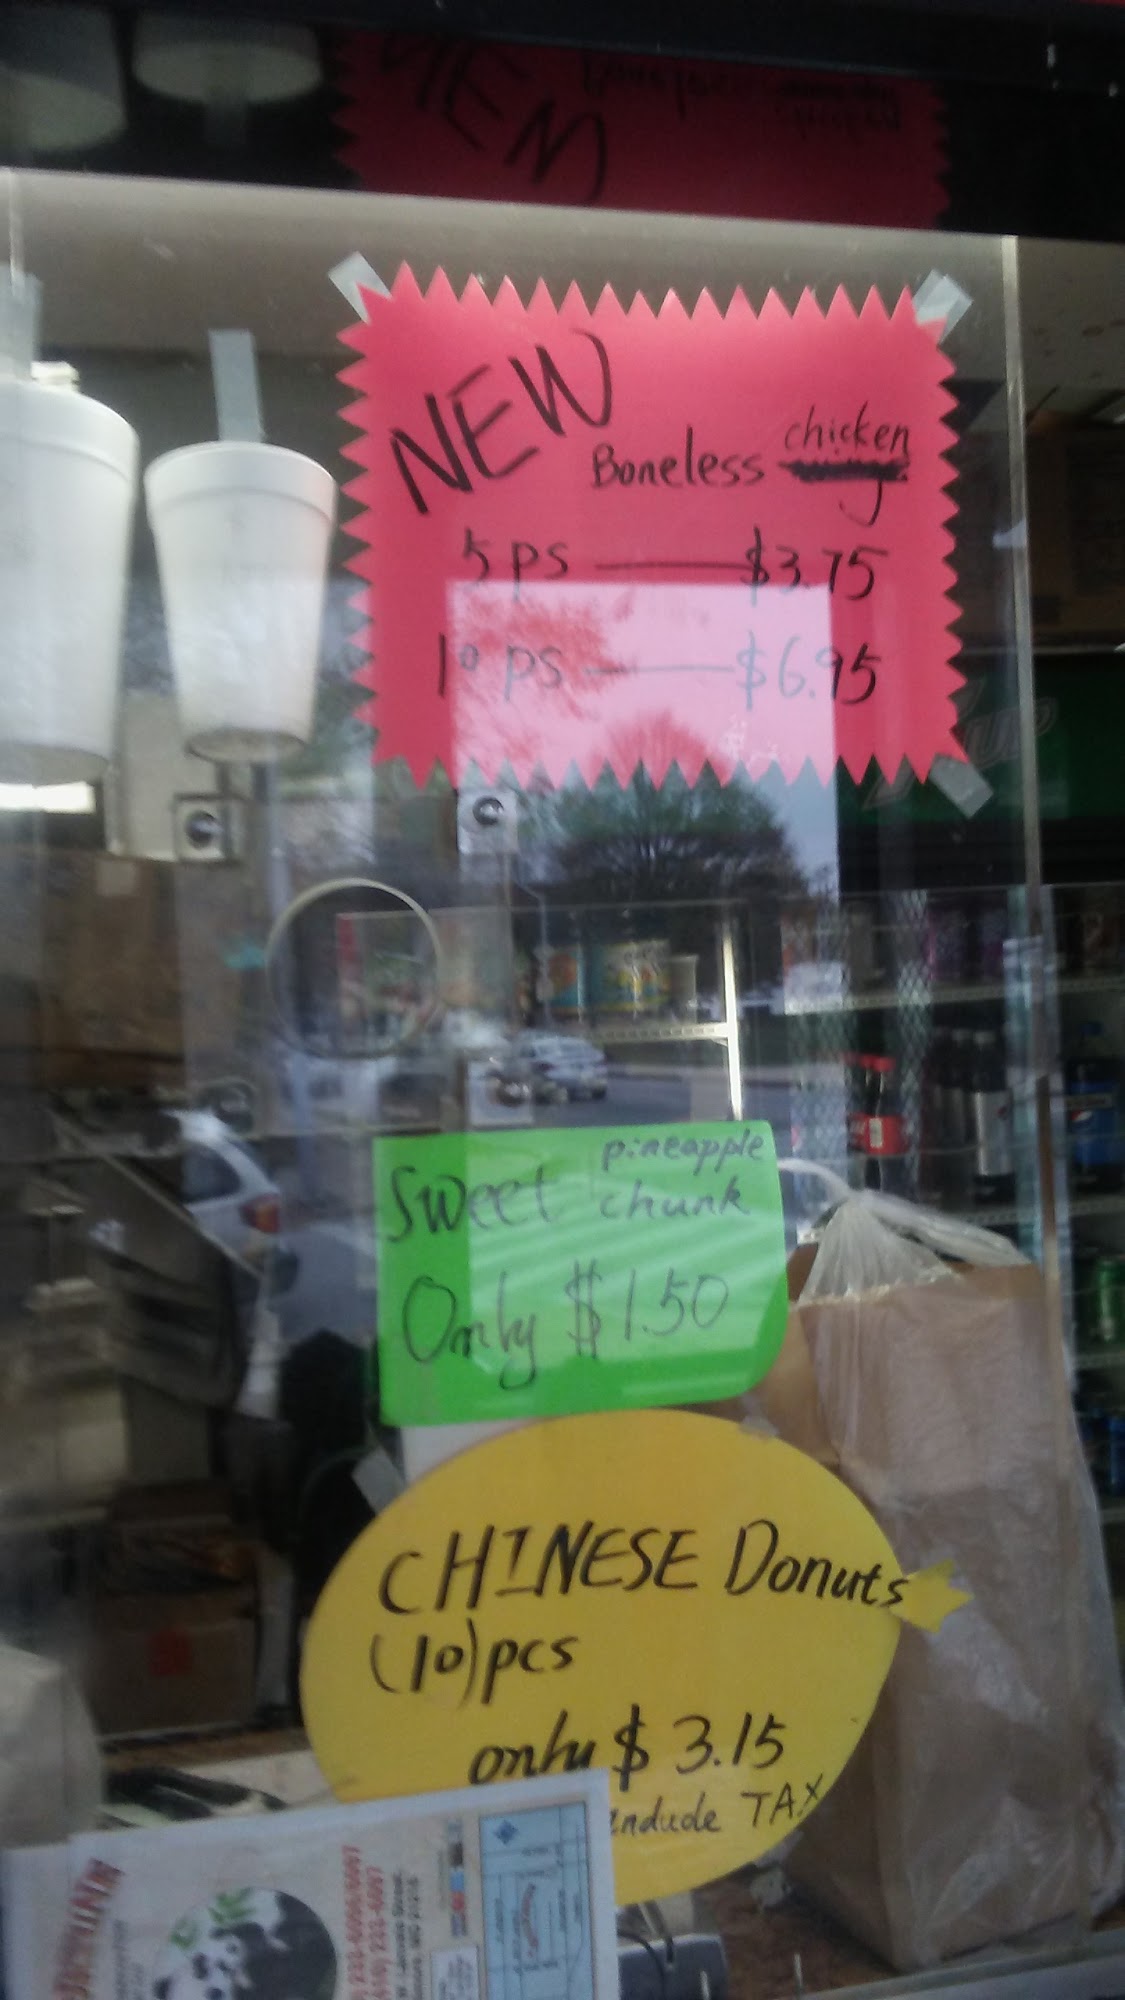 NEW
Boneless chicken
5 ps — $3.75
10 ps — $6.95
Sweet pineapple
chunk
Only $1.50
CHINESE Donuts
(10)pcs
only $3.15
include TAX